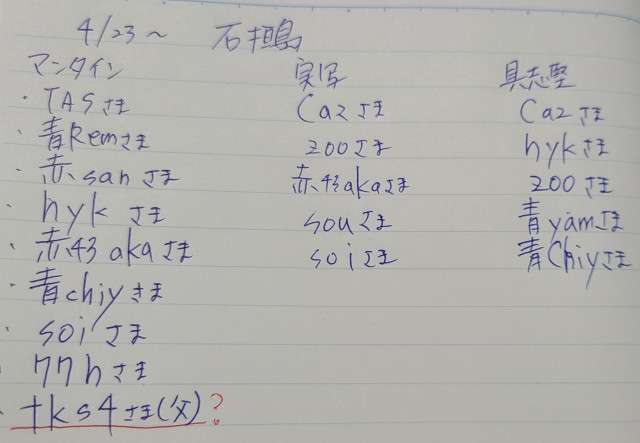 4/23～ 石垣島
マンタイン 実写 具志堅
・TASさま Cazさま Cazさま
・青Remさま zooさま hykさま
・赤sanさま 赤43akaさま zooさま
・hykさま souさま 青yamさま
・赤43akaさま soiさま 青Chiyさま
・青chiyさま
・soiさま
・77hさま
・tks4さま(父)?